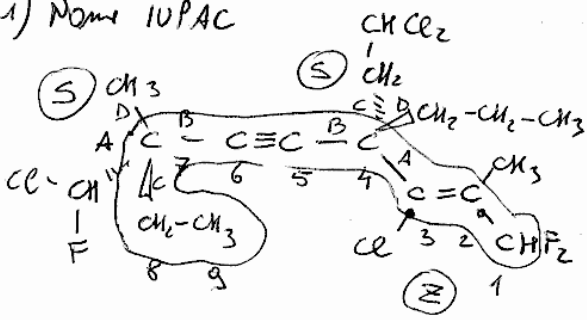 1) Nome IUPAC
CHCl2
S CH3 S CH2
D C D CH2-CH2-CH3
A C B - C≡C - B C
A CH3
Cl-CH C 7 6 5 4 C=C
F CH2-CH3 Cl 3 2 CHF2
8 9 Z 1